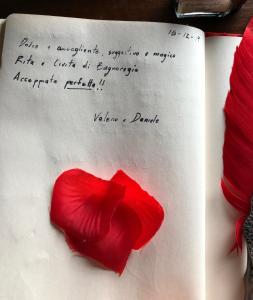 Dolce e accogliente, suggestivo e magico
Rita e Civita di Bagnoregio
Accoppiata perfetta!!
Valeria e Daniele